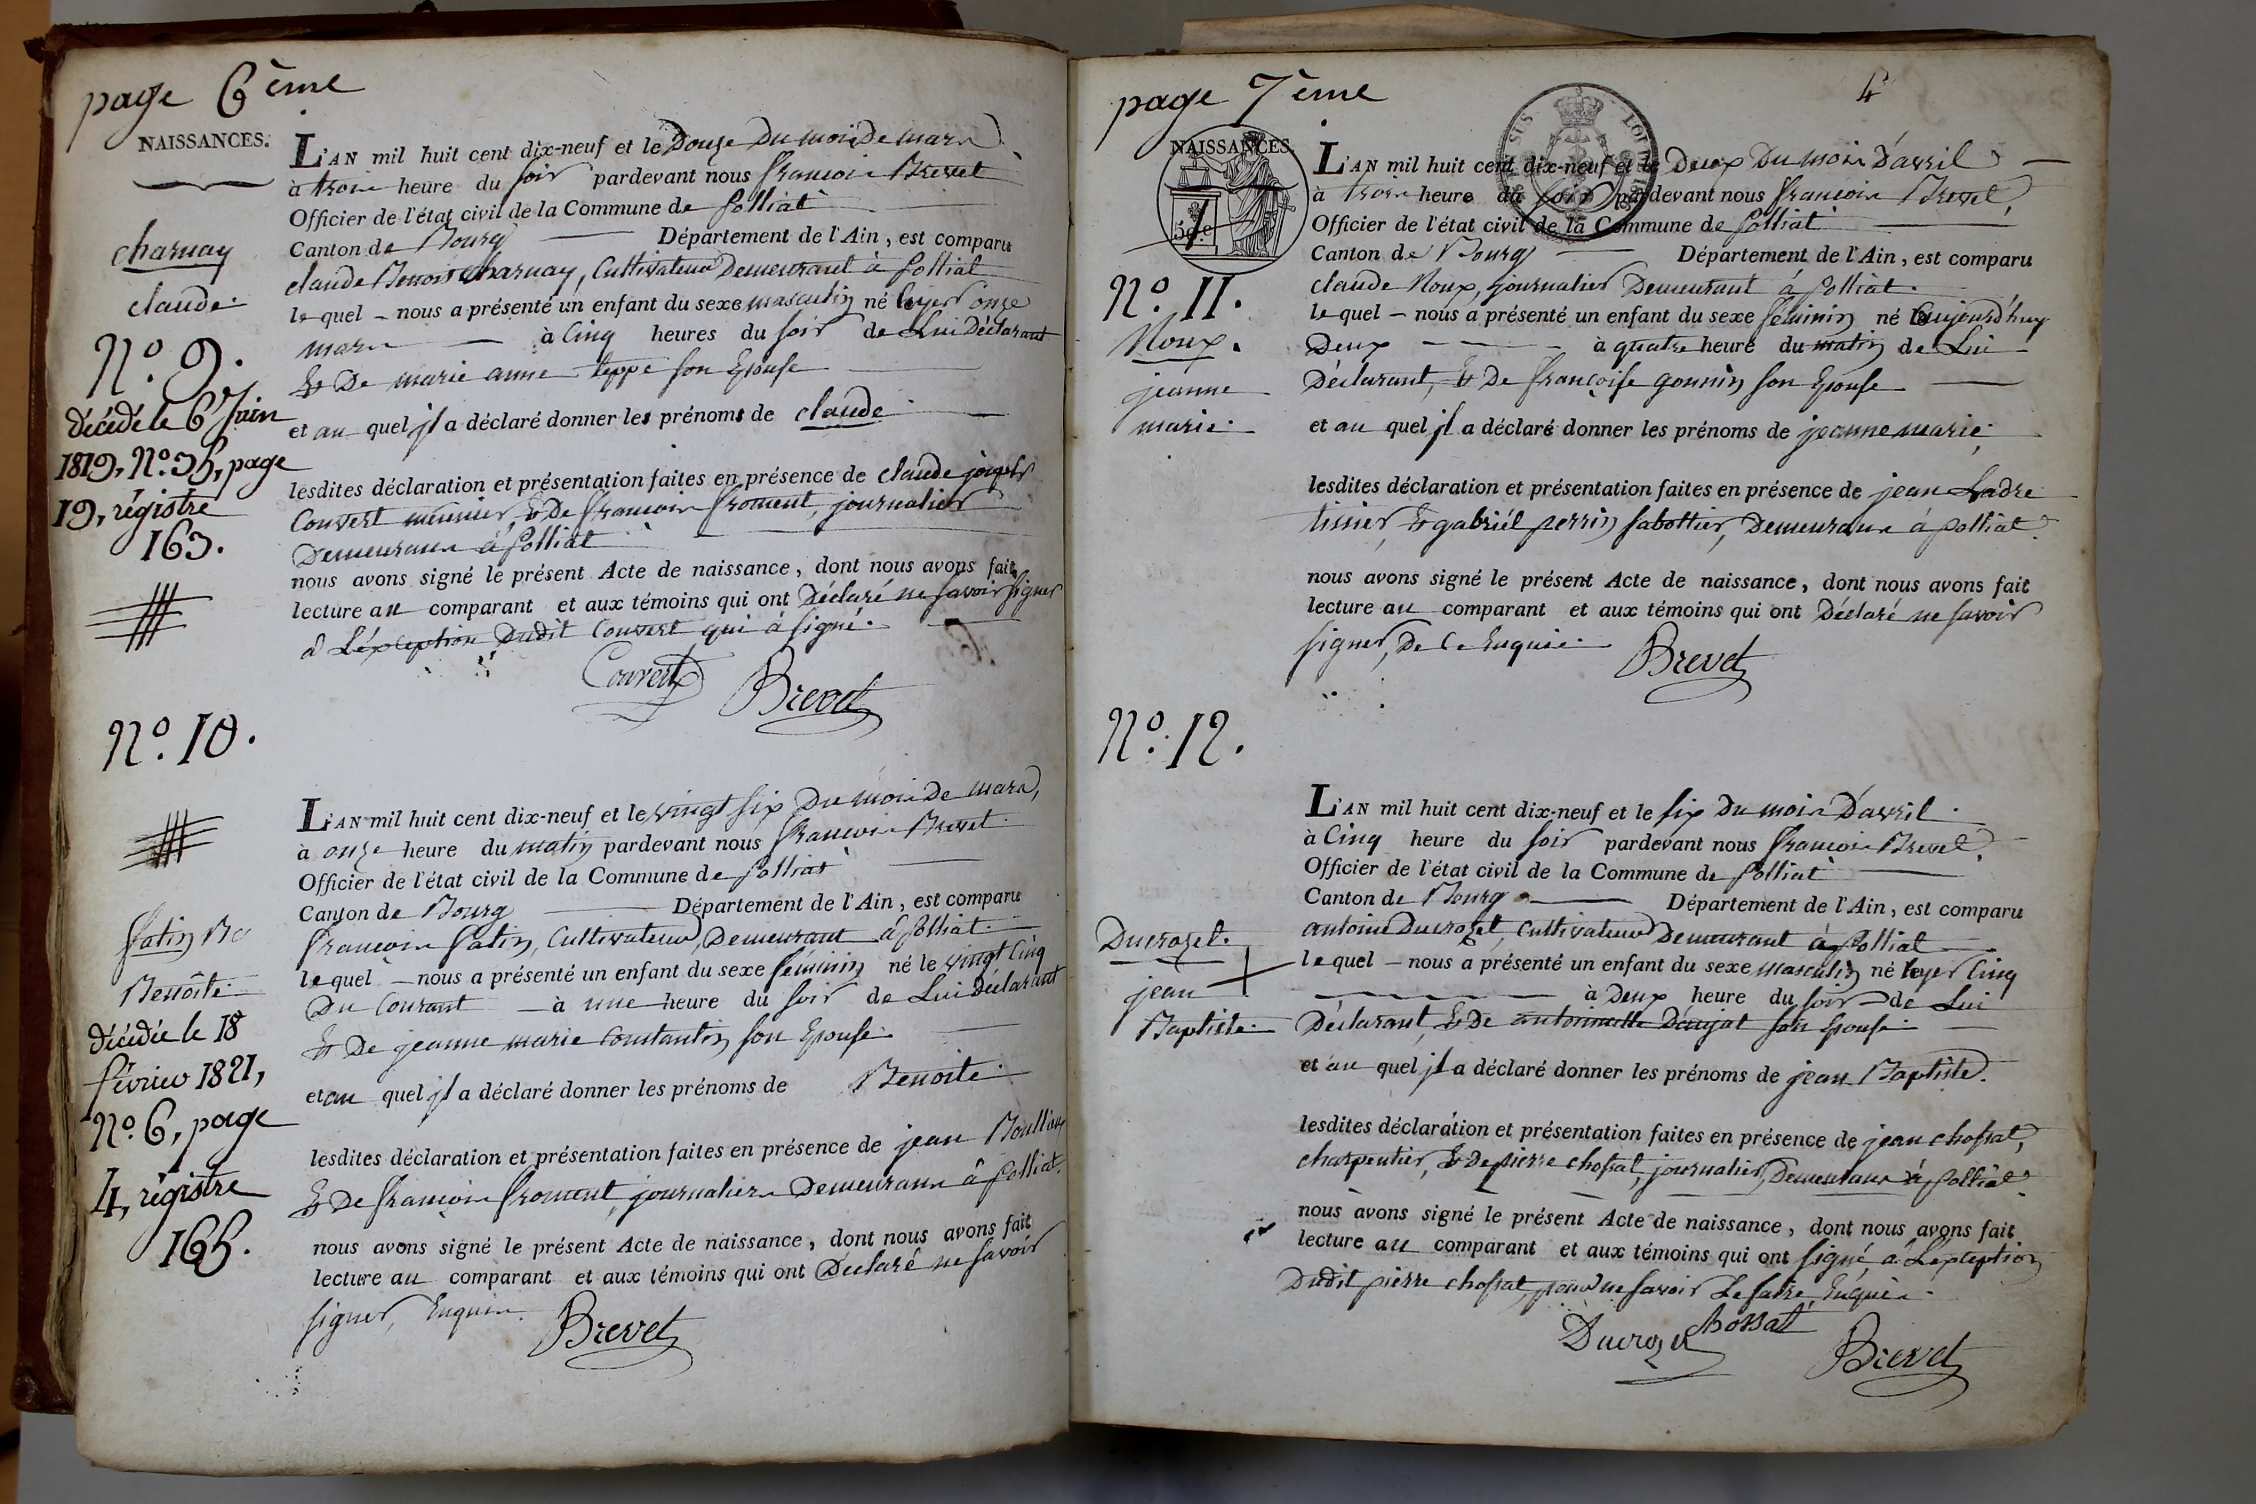 page 6ème
NAISSANCES.
charnay
claude.
N.º 9.
décédé le 6 Juin
1819, N.º 35, page
19, régistre
163.
L'AN mil huit cent dix-neuf et le Douze Du mois De mars
à trois heure du soir pardevant nous francois Brevet
Officier de l'état civil de la Commune de polliat
Canton de Bourg Département de l'Ain, est comparu
claude Benoit charnay, Cultivateur Demeurant à polliat
lequel nous a présenté un enfant du sexe masculin né hyer onze
mars à Cinq heures du soir de Lui Déclarant
Et De marie anne teppe son Epouse
et au quel il a déclaré donner les prénoms de claude
lesdites déclaration et présentation faites en présence de claude joseph
Convert meunier, Et De francois froment, journalier
Demeurans à polliat
nous avons signé le présent Acte de naissance, dont nous avons fait
lecture au comparant et aux témoins qui ont Déclaré ne savoir signer
à L'éxception Dudit Convert qui à signé.
Convert Brevet
N.º 10.
fatin
Benoite.
décédée le 18
février 1821,
N.º 6, page
4, régistre
165.
L'AN mil huit cent dix-neuf et le vingt six Du mois De mars,
à onze heure du matin pardevant nous francois Brevet
Officier de l'état civil de la Commune de polliat
Canton de Bourg Département de l'Ain, est comparu
francois fatin, Cultivateur, Demeurant à polliat.
lequel nous a présenté un enfant du sexe féminin né le vingt Cinq
Du Courant à une heure du soir de Lui Déclarant
Et De jeanne marie Constantin son Epouse.
et au quel il a déclaré donner les prénoms de Benoite.
lesdites déclaration et présentation faites en présence de jean
Et De francois froment, journaliers Demeurans à polliat.
nous avons signé le présent Acte de naissance, dont nous avons fait
lecture au comparant et aux témoins qui ont Déclaré ne savoir
signer, Enquis.
Brevet
page 7ème
4
NAISSANCES.
N.º 11.
Roux.
jeanne
marie.
L'AN mil huit cent dix-neuf et le Deux Du mois D'avril
à trois heure du soir pardevant nous francois Brevet,
Officier de l'état civil de la Commune de polliat
Canton de Bourg Département de l'Ain, est comparu
claude Roux, journalier Demeurant à polliat.
lequel nous a présenté un enfant du sexe féminin né aujourd'huy
Deux à quatre heure du matin de Lui
Déclarant, Et De françoise gonnin son Epouse
et au quel il a déclaré donner les prénoms de jeanne marie.
lesdites déclaration et présentation faites en présence de jean Ladre
tissier, Et gabriél perrin sabottier, Demeurans à polliat.
nous avons signé le présent Acte de naissance, dont nous avons fait
lecture au comparant et aux témoins qui ont Déclaré ne savoir
signer, De Ce Enquis.
Brevet
N.º 12.
Ducrozet.
jean
Baptiste.
L'AN mil huit cent dix-neuf et le six Du mois D'avril.
à Cinq heure du soir pardevant nous francois Brevet,
Officier de l'état civil de la Commune de polliat
Canton de Bourg Département de l'Ain, est comparu
antoine Ducrozet, Cultivateur Demeurant à polliat
lequel nous a présenté un enfant du sexe masculin né hyer Cinq
à Deux heure du soir de Lui
Déclarant, Et De antoinette son Epouse.
et au quel il a déclaré donner les prénoms de jean Baptiste.
lesdites déclaration et présentation faites en présence de jean chossat,
charpentier, Et De pierre chossat, journalier, Demeurans à polliat.
nous avons signé le présent Acte de naissance, dont nous avons fait
lecture au comparant et aux témoins qui ont signé, à L'éxception
Dudit pierre chossat, pour ne savoir Le faire Enquis.
Ducrozet chossat Brevet